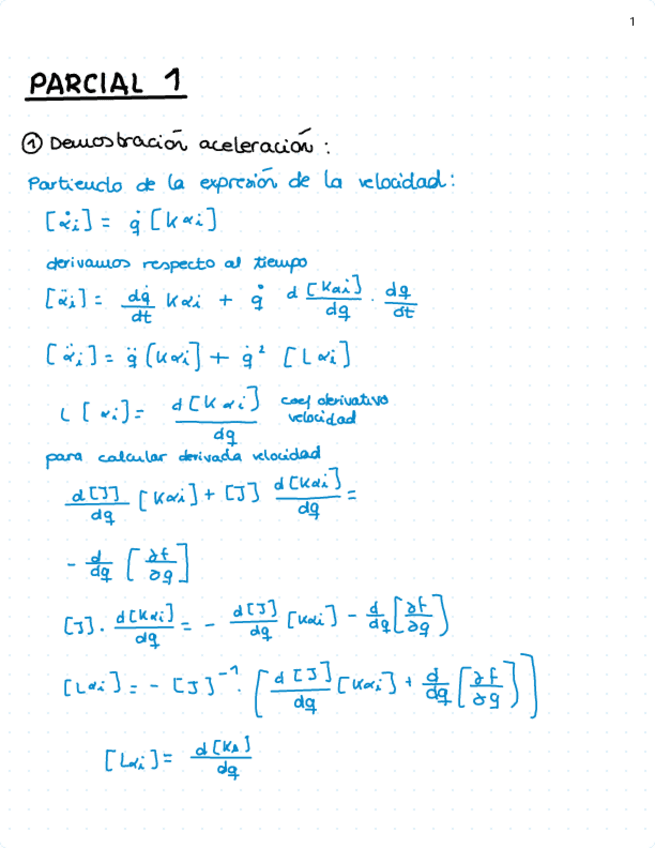 1
PARCIAL 1
① Demostración aceleración:
Partiendo de la expresión de la velocidad:
[α̇i] = q̇ [Kαi]
derivamos respecto al tiempo
[α̈i] = dq̇/dt Kαi + q̇ d[Kαi]/dq · dq/dt
[α̈i] = q̈ [Kαi] + q̇² [Lαi]
L[αi] = d[Kαi]/dq coef derivativo velocidad
para calcular derivada velocidad
d[J]/dq [Kαi] + [J] d[Kαi]/dq =
- d/dq [∂f/∂q]
[J] · d[Kαi]/dq = - d[J]/dq [Kαi] - d/dq [∂f/∂q]
[Lαi] = - [J]⁻¹ · [d[J]/dq [Kαi] + d/dq [∂f/∂q]]
[Lαi] = d[Ks]/dq